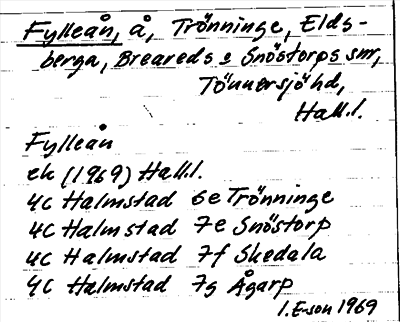 Fylleån, å, Trönninge, Elds-
berga, Breareds o Snöstorps snr,
Tönnersjö hd,
Hall.l.
Fylleån
ek (1969) Hall.l.
4C Halmstad 6e Trönninge
4C Halmstad 7e Snöstorp
4C Halmstad 7f Skedala
4C Halmstad 7g Ågarp
I.E-son 1969